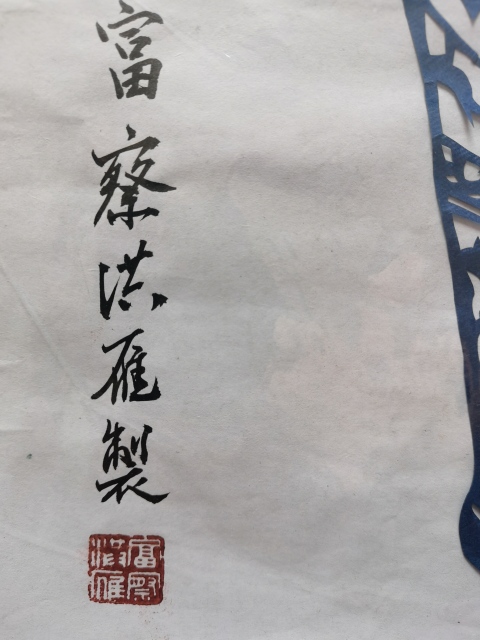 富察洪雁製
富察洪雁